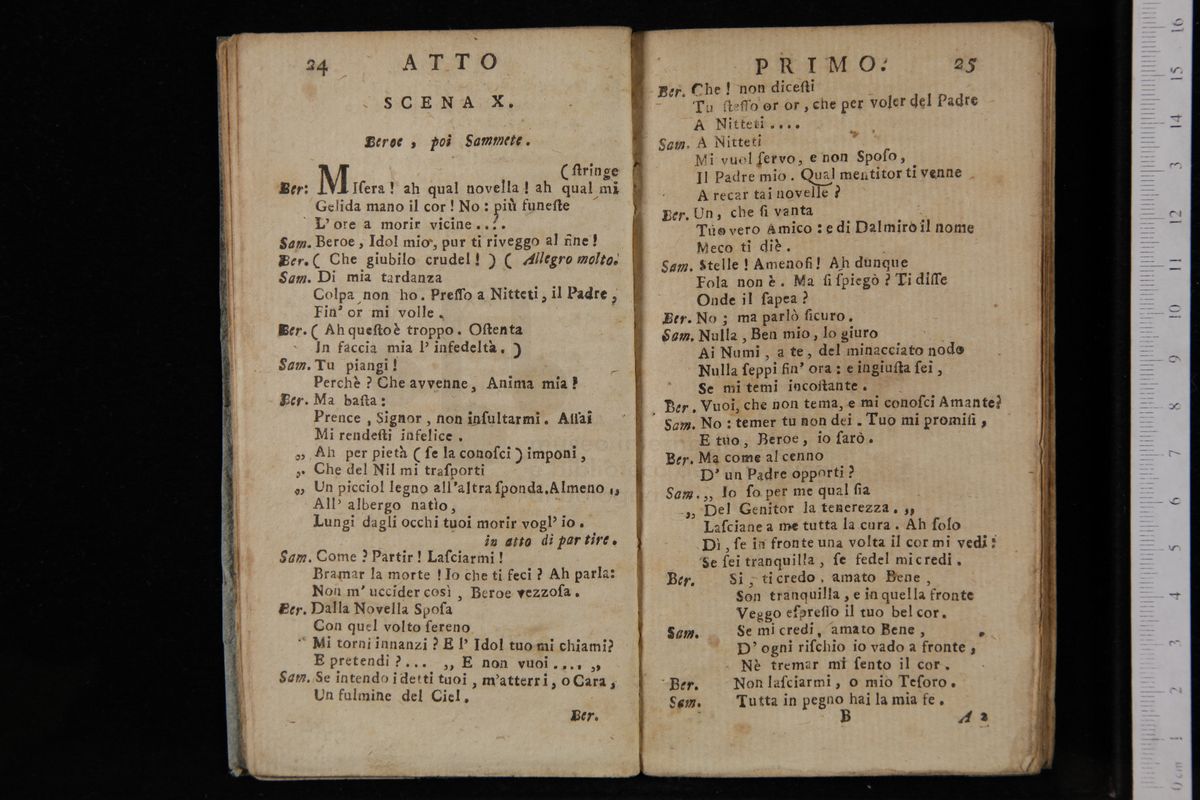 24 ATTO
SCENA X.
Beroe, poi Sammete.
(ſtringe
Ber: MIſera! ah qual novella! ah qual mi
Gelida mano il cor! No: più funeſte
L'ore a morir vicine...
Sam. Beroe, Idol mio, pur ti riveggo al fine!
Ber. ( Che giubilo crudel! ) ( Allegro molto.
Sam. Di mia tardanza
Colpa non ho. Preſſo a Nitteti, il Padre,
Fin' or mi volle.
Ber. ( Ah queſto è troppo. Oſtenta
In faccia mia l'infedeltà. )
Sam. Tu piangi!
Perchè? Che avvenne, Anima mia?
Ber. Ma baſta:
Prence, Signor, non inſultarmi. Aſſai
Mi rendeſti infelice.
„ Ah per pietà ( ſe la conoſci ) imponi,
„ Che del Nil mi traſporti
„ Un picciol legno all'altra ſponda. Almeno „
All' albergo natìo,
Lungi dagli occhi tuoi morir vogl' io.
in atto di partire.
Sam. Come? Partir! Laſciarmi!
Bramar la morte! Io che ti feci? Ah parla:
Non m'uccider così, Beroe vezzoſa.
Ber. Dalla Novella Spoſa
Con quel volto ſereno
Mi torni innanzi? E l'Idol tuo mi chiami?
E pretendi?... „ E non vuoi.... „
Sam. Se intendo i detti tuoi, m'atterri, o Cara,
Un fulmine del Ciel.
Ber.
PRIMO. 25
Ber. Che! non diceſti
Tu ſteſſo or or, che per voler del Padre
A Nitteti....
Sam. A Nitteti
Mi vuol ſervo, e non Spoſo,
Il Padre mio. Qual mentitor ti venne
A recar tai novelle?
Ber. Un, che ſi vanta
Tuo vero Amico: e di Dalmiro il nome
Meco ti diè.
Sam. Stelle! Amenofi! Ah dunque
Fola non è. Ma ſi ſpiegò? Ti diſſe
Onde il ſapea?
Ber. No; ma parlò ſicuro.
Sam. Nulla, Ben mio, lo giuro
Ai Numi, a te, del minacciato nodo
Nulla ſeppi fin' ora: e ingiuſta ſei,
Se mi temi incoſtante.
Ber. Vuoi, che non tema, e mi conoſci Amante?
Sam. No: temer tu non dei. Tuo mi promiſi,
E tuo, Beroe, io ſarò.
Ber. Ma come al cenno
D' un Padre opporti?
Sam. „ Io ſo per me qual ſia
„ Del Genitor la tenerezza. „
Laſciane a me tutta la cura. Ah ſolo
Dì, ſe in fronte una volta il cor mi vedi:
Se ſei tranquilla, ſe fedel mi credi.
Ber. Si, ti credo, amato Bene,
Son tranquilla, e in quella fronte
Veggo eſpreſſo il tuo bel cor.
Sam. Se mi credi, amato Bene,
D'ogni riſchio io vado a fronte,
Nè tremar mi ſento il cor.
Ber. Non laſciarmi, o mio Teſoro.
Sam. Tutta in pegno hai la mia fe.
B A 2
16
15
14
13
12
11
10
9
8
7
6
5
4
3
2
1
0 cm